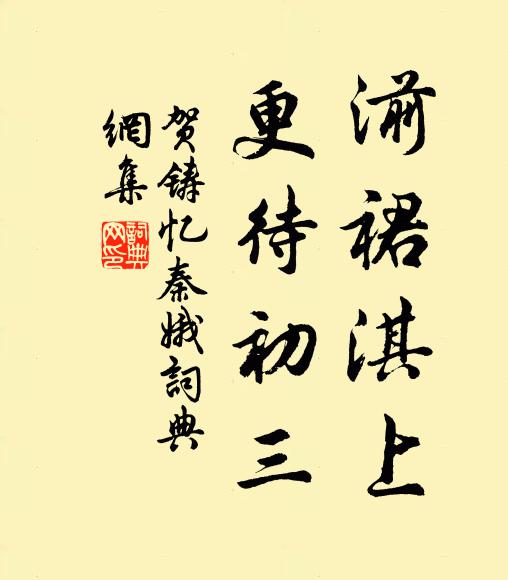 湔裙淇上
更待初三
贺铸忆秦娥詞典
網集
詞典
网印